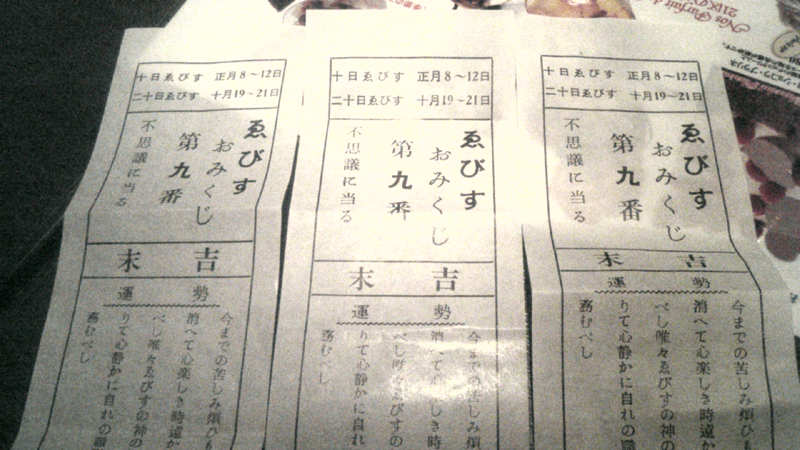 十日ゑびす 正月8〜12日
二十日ゑびす 十月19〜21日
ゑびす
おみくじ
第九番
不思議に当る
末吉
運勢
今までの苦しみ煩ひも
消へて心楽しき時遠か
べし唯々ゑびすの神の
りて心静かに自れの職
務むべし
十日ゑびす 正月8〜12日
二十日ゑびす 十月19〜21日
ゑびす
おみくじ
第九番
不思議に当る
末吉
運勢
今までの苦しみ煩
消へて心楽しき時
べし唯々ゑびすの
りて心静かに自れ
務むべし
十日ゑびす 正月8〜12日
二十日ゑびす 十月19〜21日
ゑびす
おみくじ
第九番
不思議に当る
末吉
運勢
今までの苦しみ煩ひも
消へて心楽しき時遠か
べし唯々ゑびすの神の
りて心静かに自れの職
務むべし
Nos Parfait